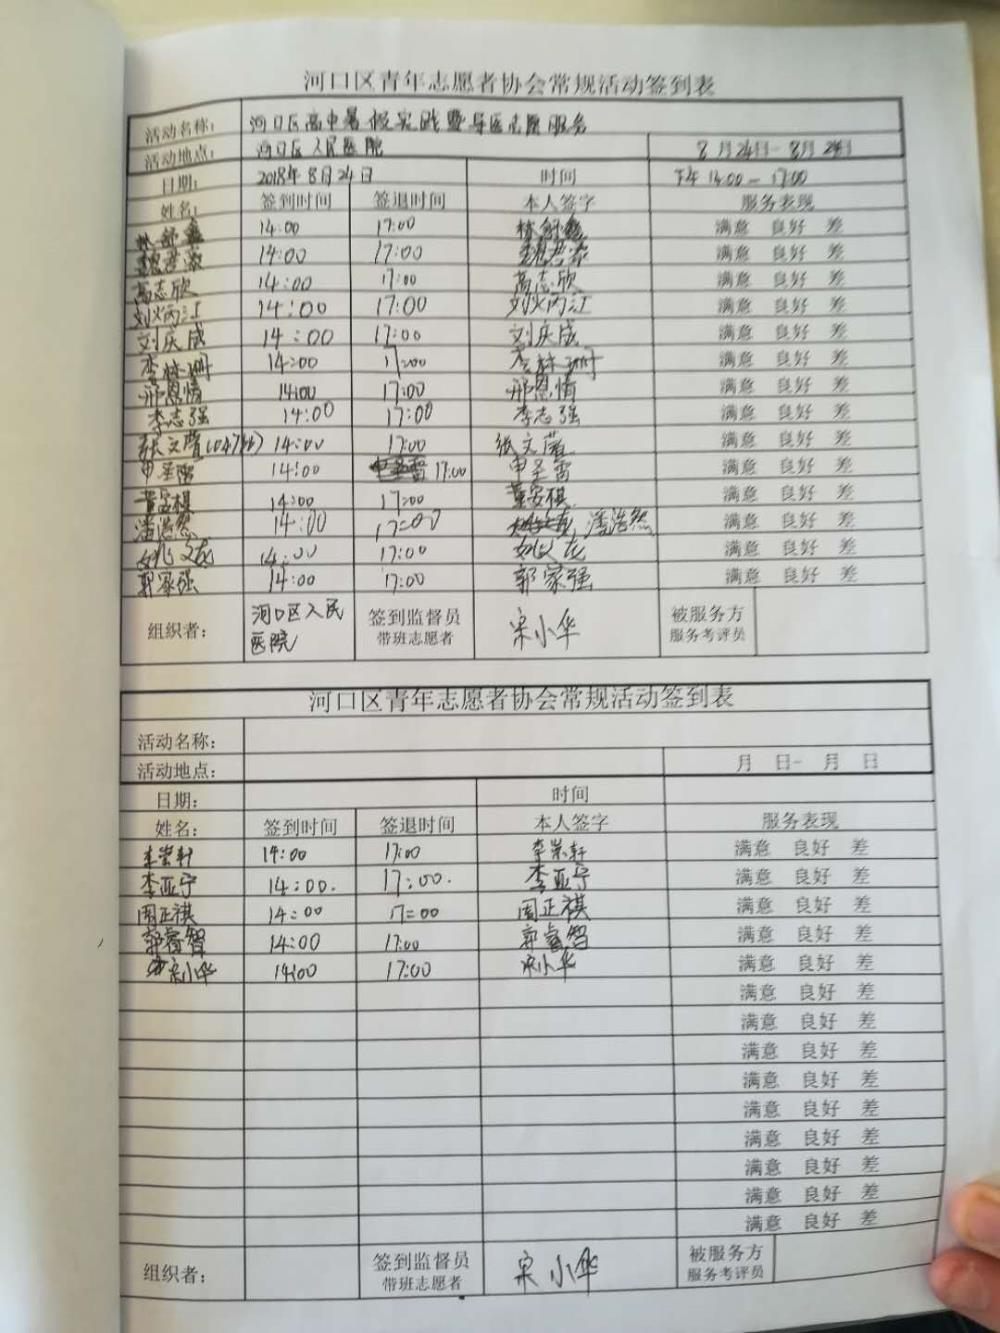 河口区青年志愿者协会常规活动签到表
活动名称: 河口区高中暑假实践暨导医志愿服务
活动地点: 河口区人民医院 8月24日-8月24日
日期: 2018年8月24日 时间 下午14:00-17:00
姓名: 签到时间 签退时间 本人签字 服务表现
林舒鑫 14:00 17:00 林舒鑫 满意 良好 差
14:00 17:00 满意 良好 差
高志欣 14:00 17:00 高志欣 满意 良好 差
刘炳江 14:00 17:00 刘炳江 满意 良好 差
刘庆成 14:00 17:00 刘庆成 满意 良好 差
李林珊 14:00 17:00 李林珊 满意 良好 差
邢恩情 14:00 17:00 邢恩情 满意 良好 差
李志强 14:00 17:00 李志强 满意 良好 差
张文 14:00 17:00 张文 满意 良好 差
申圣雷 14:00 17:00 申圣雷 满意 良好 差
董安棋 14:00 17:00 董安棋 满意 良好 差
潘浩然 14:00 17:00 潘浩然 满意 良好 差
姚文龙 14:00 17:00 姚文龙 满意 良好 差
郭家强 14:00 17:00 郭家强 满意 良好 差
组织者: 河口区人民医院 签到监督员 带班志愿者 宋小华 被服务方 服务考评员
河口区青年志愿者协会常规活动签到表
活动名称:
活动地点: 月 日- 月 日
日期: 时间
姓名: 签到时间 签退时间 本人签字 服务表现
李崇轩 14:00 17:00 李崇轩 满意 良好 差
李亚宁 14:00. 17:00. 李亚宁 满意 良好 差
周正祺 14:00 17:00 周正祺 满意 良好 差
郭睿智 14:00 17:00 郭睿智 满意 良好 差
宋小华 14:00 17:00 宋小华 满意 良好 差
满意 良好 差
满意 良好 差
满意 良好 差
满意 良好 差
满意 良好 差
满意 良好 差
满意 良好 差
满意 良好 差
满意 良好 差
组织者: 签到监督员 带班志愿者 宋小华 被服务方 服务考评员